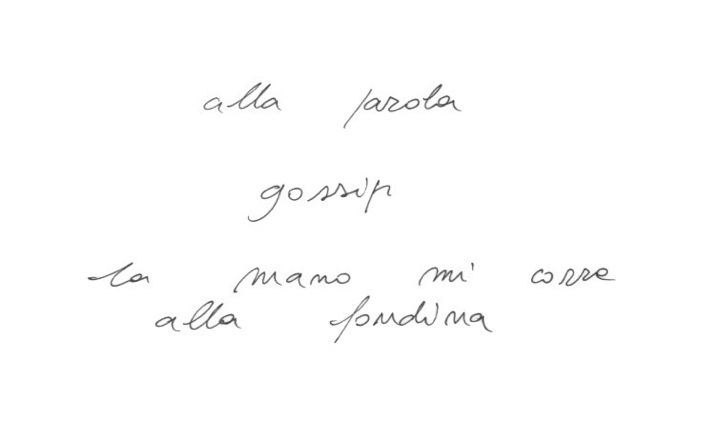 alla parola
gossip
la mano mi corre
alla fondina